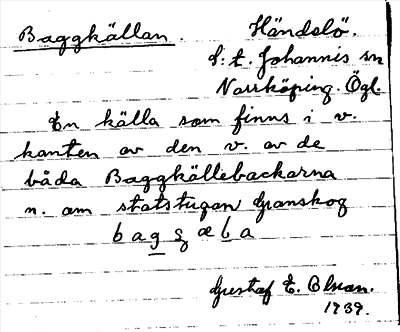 Baggkällan. Händelö.
S:t. Johannis sn
Norrköping. Ögl.
En källa som finns i v.
kanten av den v. av de
båda Baggkällebackarna
n. om statstugan Granskog
Gustaf E. Olsson.
1939.